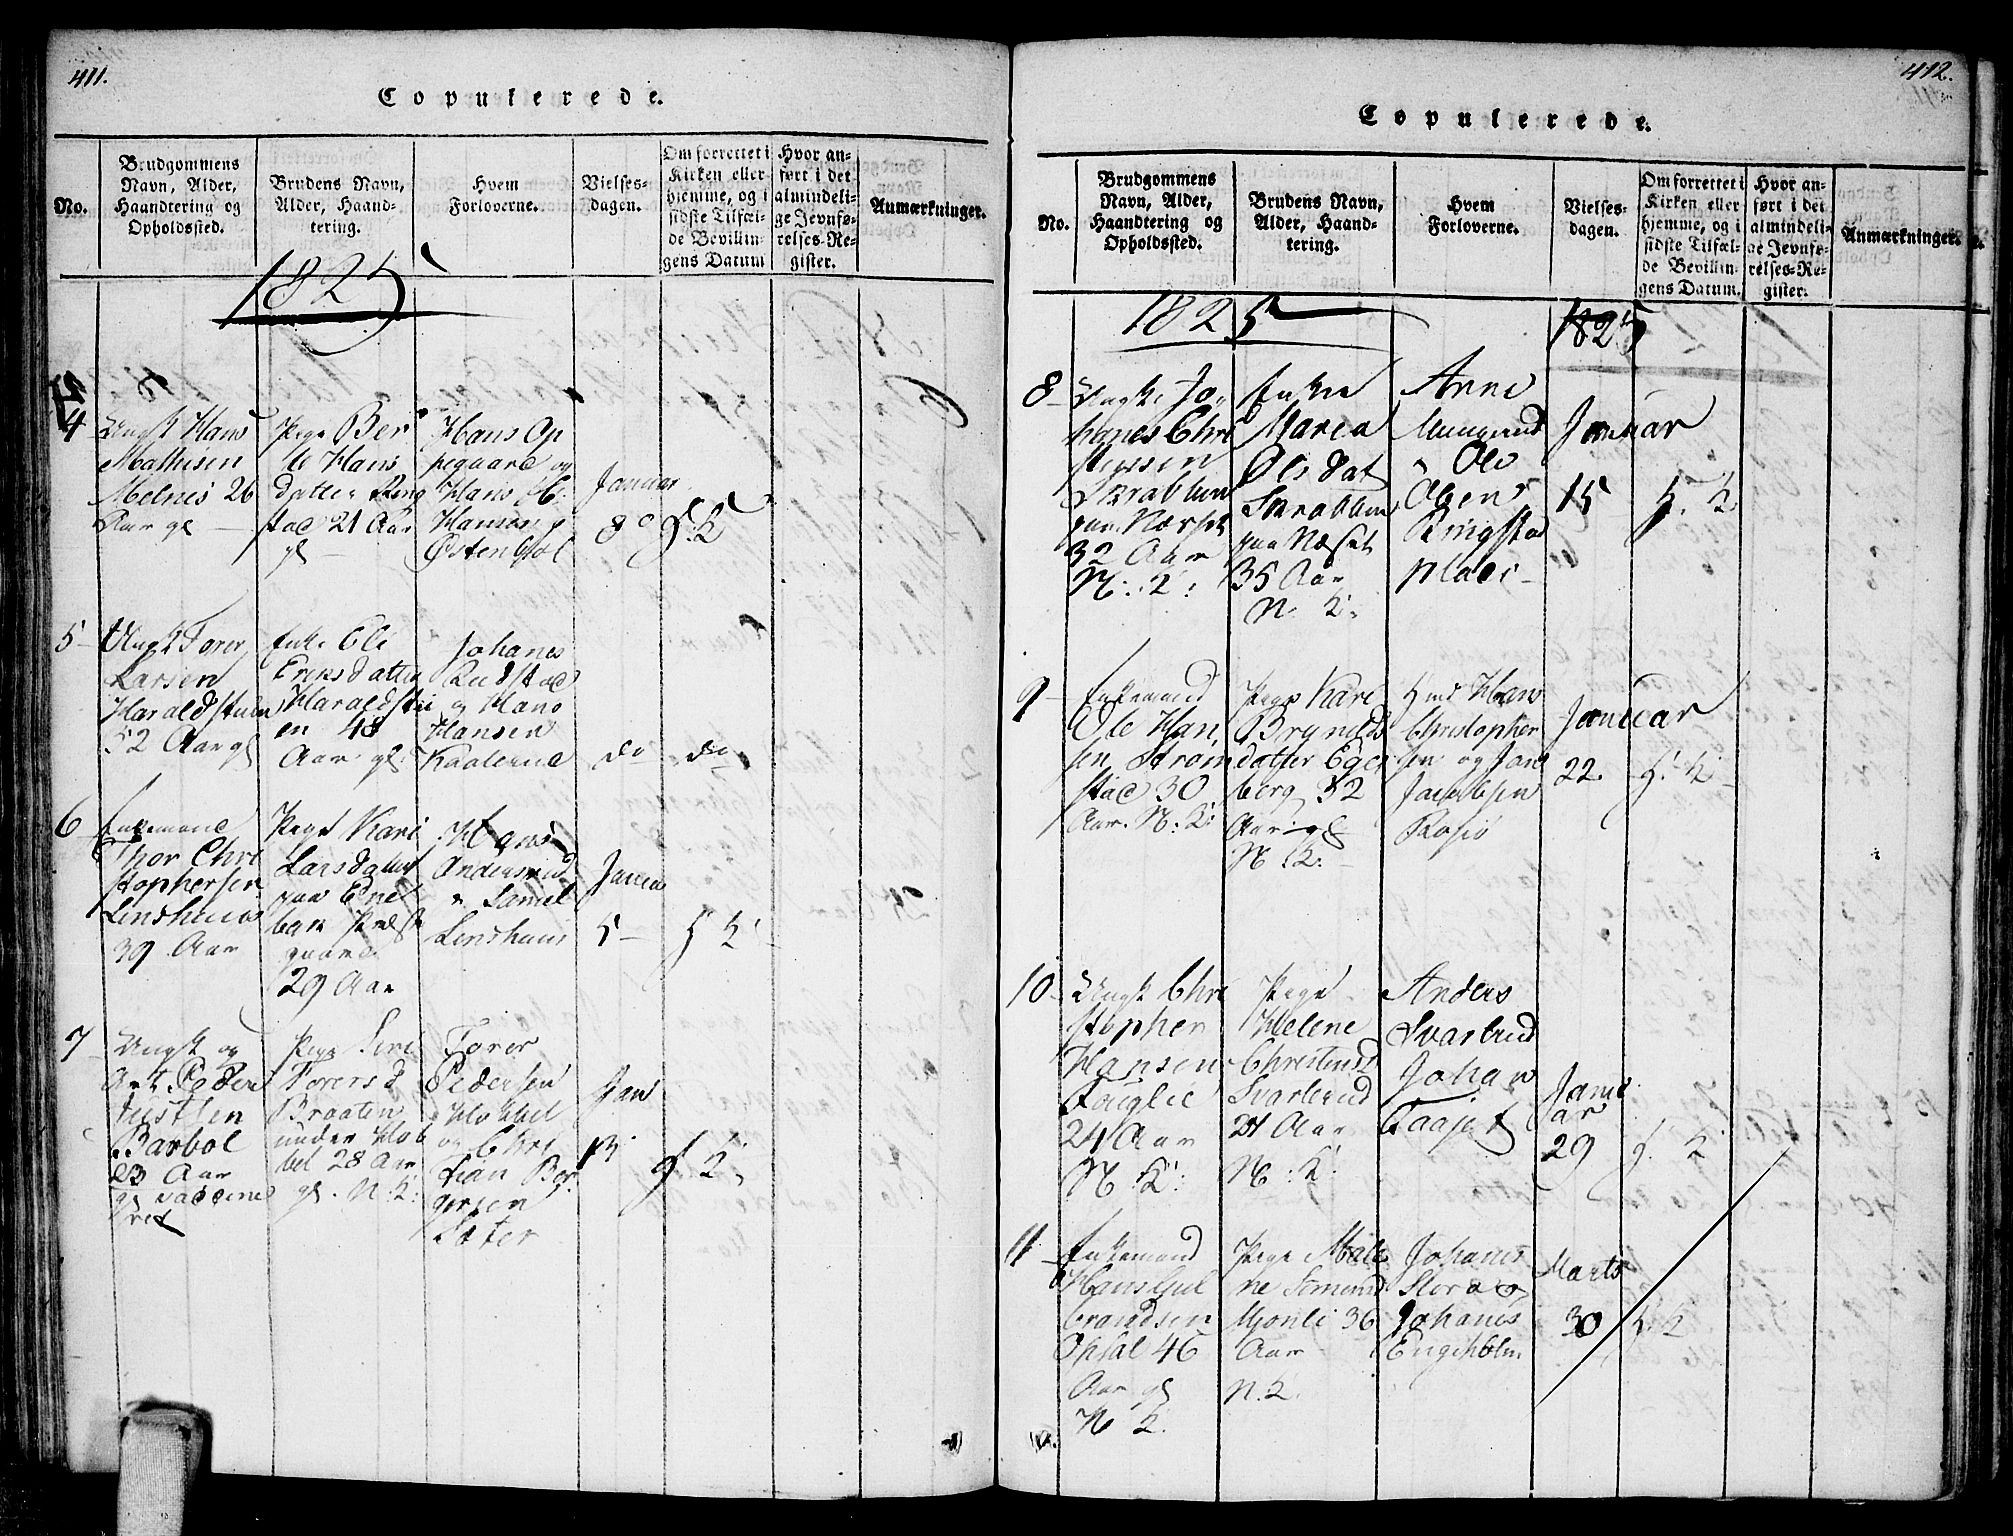 411.
Copulerede.
No.
Brudgommens
Navn, Alder,
Haandtering og
Opholdssted.
Brudens Navn,
Alder, Haand-
tering.
Hvem
Forloverne.
Vielses-
dagen.
Om forrettet i
Kirken eller
hjemme, og i
sidste Tilfæl-
de Bevillin-
gens Datum
Hvor an-
ført i det
almindeli-
ge Jevnfø-
relses-Re-
gister.
Anmærkninger.
1825
4
Ungk Hans
Mathisen
Melnes 26
Aar gl
Pige Ber
te Hans
datter Ring
stad 21 Aar
gl
Hans Op
pegaard og
Hans H:
Hansen
Østenbøl
Januar
8
5
Ungk Torer
Larsen
Haraldstuen
52 Aar gl
Enke Eli
Eriksdatter
Haraldstu
en 48
Aar gl
Johanes
Rudstad
og Hans
Hansen
do
do
6
Enkemand
Thor Chri
stophersen
Lindhuus
39 Aar
Pige Kari
Larsdatter
paa
Præste
gaard
29 Aar
Hans
Andersrud
Samuel
Lindhuus
Janua
5
7
Ungk og
Peder
Barbøl
23 Aar
gl vaccine
ret
Pige Siri
Torersd
Braaten
under Hob
bel 28 Aar
gl. N. K:
Torer
Pedersen
Hobbel
og Chri
stian Bør
gersen
Sæter
Jan
13
412.
Copulerede.
No.
Brudgommens
Navn, Alder,
Haandtering og
Opholdssted.
Brudens Navn,
Alder, Haand-
tering.
Hvem
Forloverne.
Vielses-
dagen.
Om forrettet i
Kirken eller
hjemme, og i
sidste Tilfæl-
de Bevillin-
gens Datum.
Hvor an-
ført i det
almindeli-
ge Jevnfø-
relses-Re-
gister.
Anmærkninger.
1825
1825
8
Ungk. Jo
hanes Chri
stensen
Skrabben
paa Næsset
32 Aar
N: K:
Enke
Maria
Olsdat
Skrabben
paa Næsset
35 Aar
N. K:
Arne
Mungerud
Ole
Olsen
Ringstad
plads
Januar
15
9
Enkemand
Ole Han
sen Strøm
stad 30
Aar. N: K:
Pige Kari
Bryntds
datter Eger
berg 32
Aar gl
N K:
Hans
Christopher
sen og Jan
Jacobsen
Januar
22.
10
Ungk Chri
stopher
Hansen
Fuglie
24 Aar
N: K:
Pige
Helene
Christensd
Svartrud
21 Aar
N: K:
Anders
Svartrud
Johan
Taaset
Janu
ar
29
11
Enkemand
Hans Gul
brandsen
Opsal 46
Aar gl
N K.
Pige Male
ne Simensd
Mjonli 36
Aar
N. K.
Johanes
Slora og
Johanes
Engeholm
Marts
30